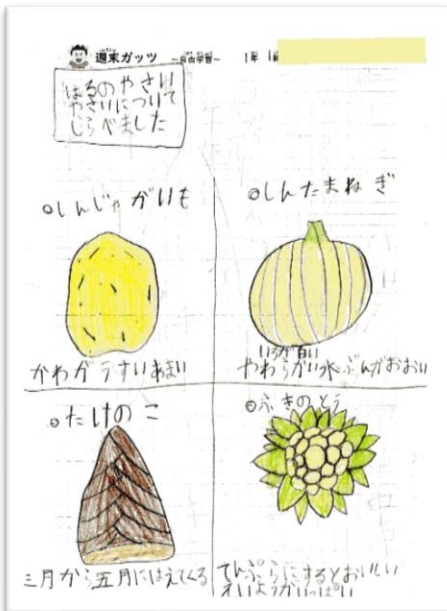 週末ガッツ ～自由学習～ 1年 1
はるのやさい
やさいについて
しらべました
◎しんじゃがいも
かわがうすいあまい
◎しんたまねぎ
いろが白い
やわらかい水ぶんがおおい
◎たけのこ
三月から五月にはえてくる
◎ふきのとう
てんぷらにするとおいしい
えいようがいっぱい